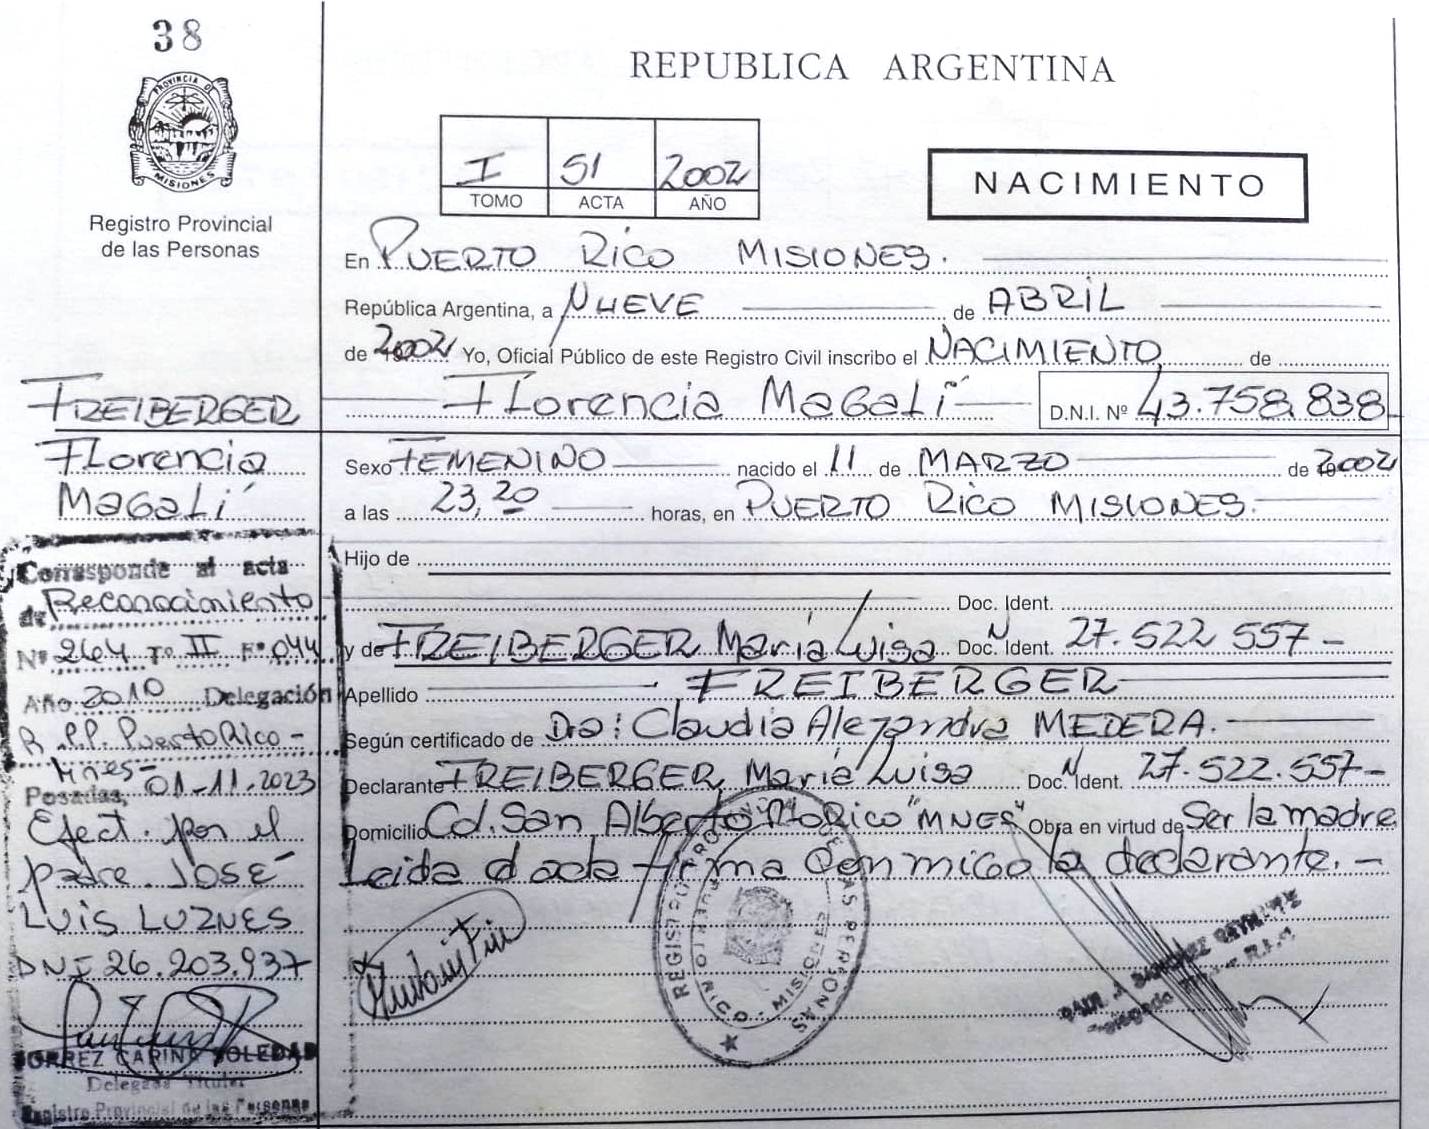 38
PROVINCIA D
MISIONES
Registro Provincial
de las Personas
REPUBLICA ARGENTINA
I 51 2002
TOMO ACTA AÑO
NACIMIENTO
En PUERTO RICO MISIONES.
República Argentina, a NUEVE de ABRIL
de 2002 Yo, Oficial Público de este Registro Civil inscribo el NACIMIENTO de
FREIBERGER Florencia Magalí D.N.I. Nº 43.758.838
Florencia
Magalí
Sexo FEMENINO nacido el 11 de MARZO de 2002
a las 23,20 horas, en PUERTO RICO MISIONES.
Hijo de
Doc. Ident.
y de FREIBERGER María Luisa Doc. N Ident. 27.522 557-
Apellido FREIBERGER
Según certificado de Dra: Claudia Alejandra MEDERA.
Declarante FREIBERGER, María Luisa Doc. N Ident. 27.522.557-
Domicilio Cd. San Alberto Pto Rico "MNES" Obra en virtud de Ser la madre
Leida el acta firma conmigo la declarante.-
Corresponde al acta
de Reconocimiento
Nº 264 Tº II Fº 044
Año 2010 Delegación
R.P.P. Puerto Rico-
Mnes-
Posadas, 01-11-2023
Efect. por el
padre JOSÉ
LUIS LUZNES
DNI 26.203.937
CARINA SOLEDAD
Delegada Titular
Registro Provincial de las Personas
REGISTRO PROVINCIAL DE LAS PERSONAS
PUERTO RICO - MISIONES